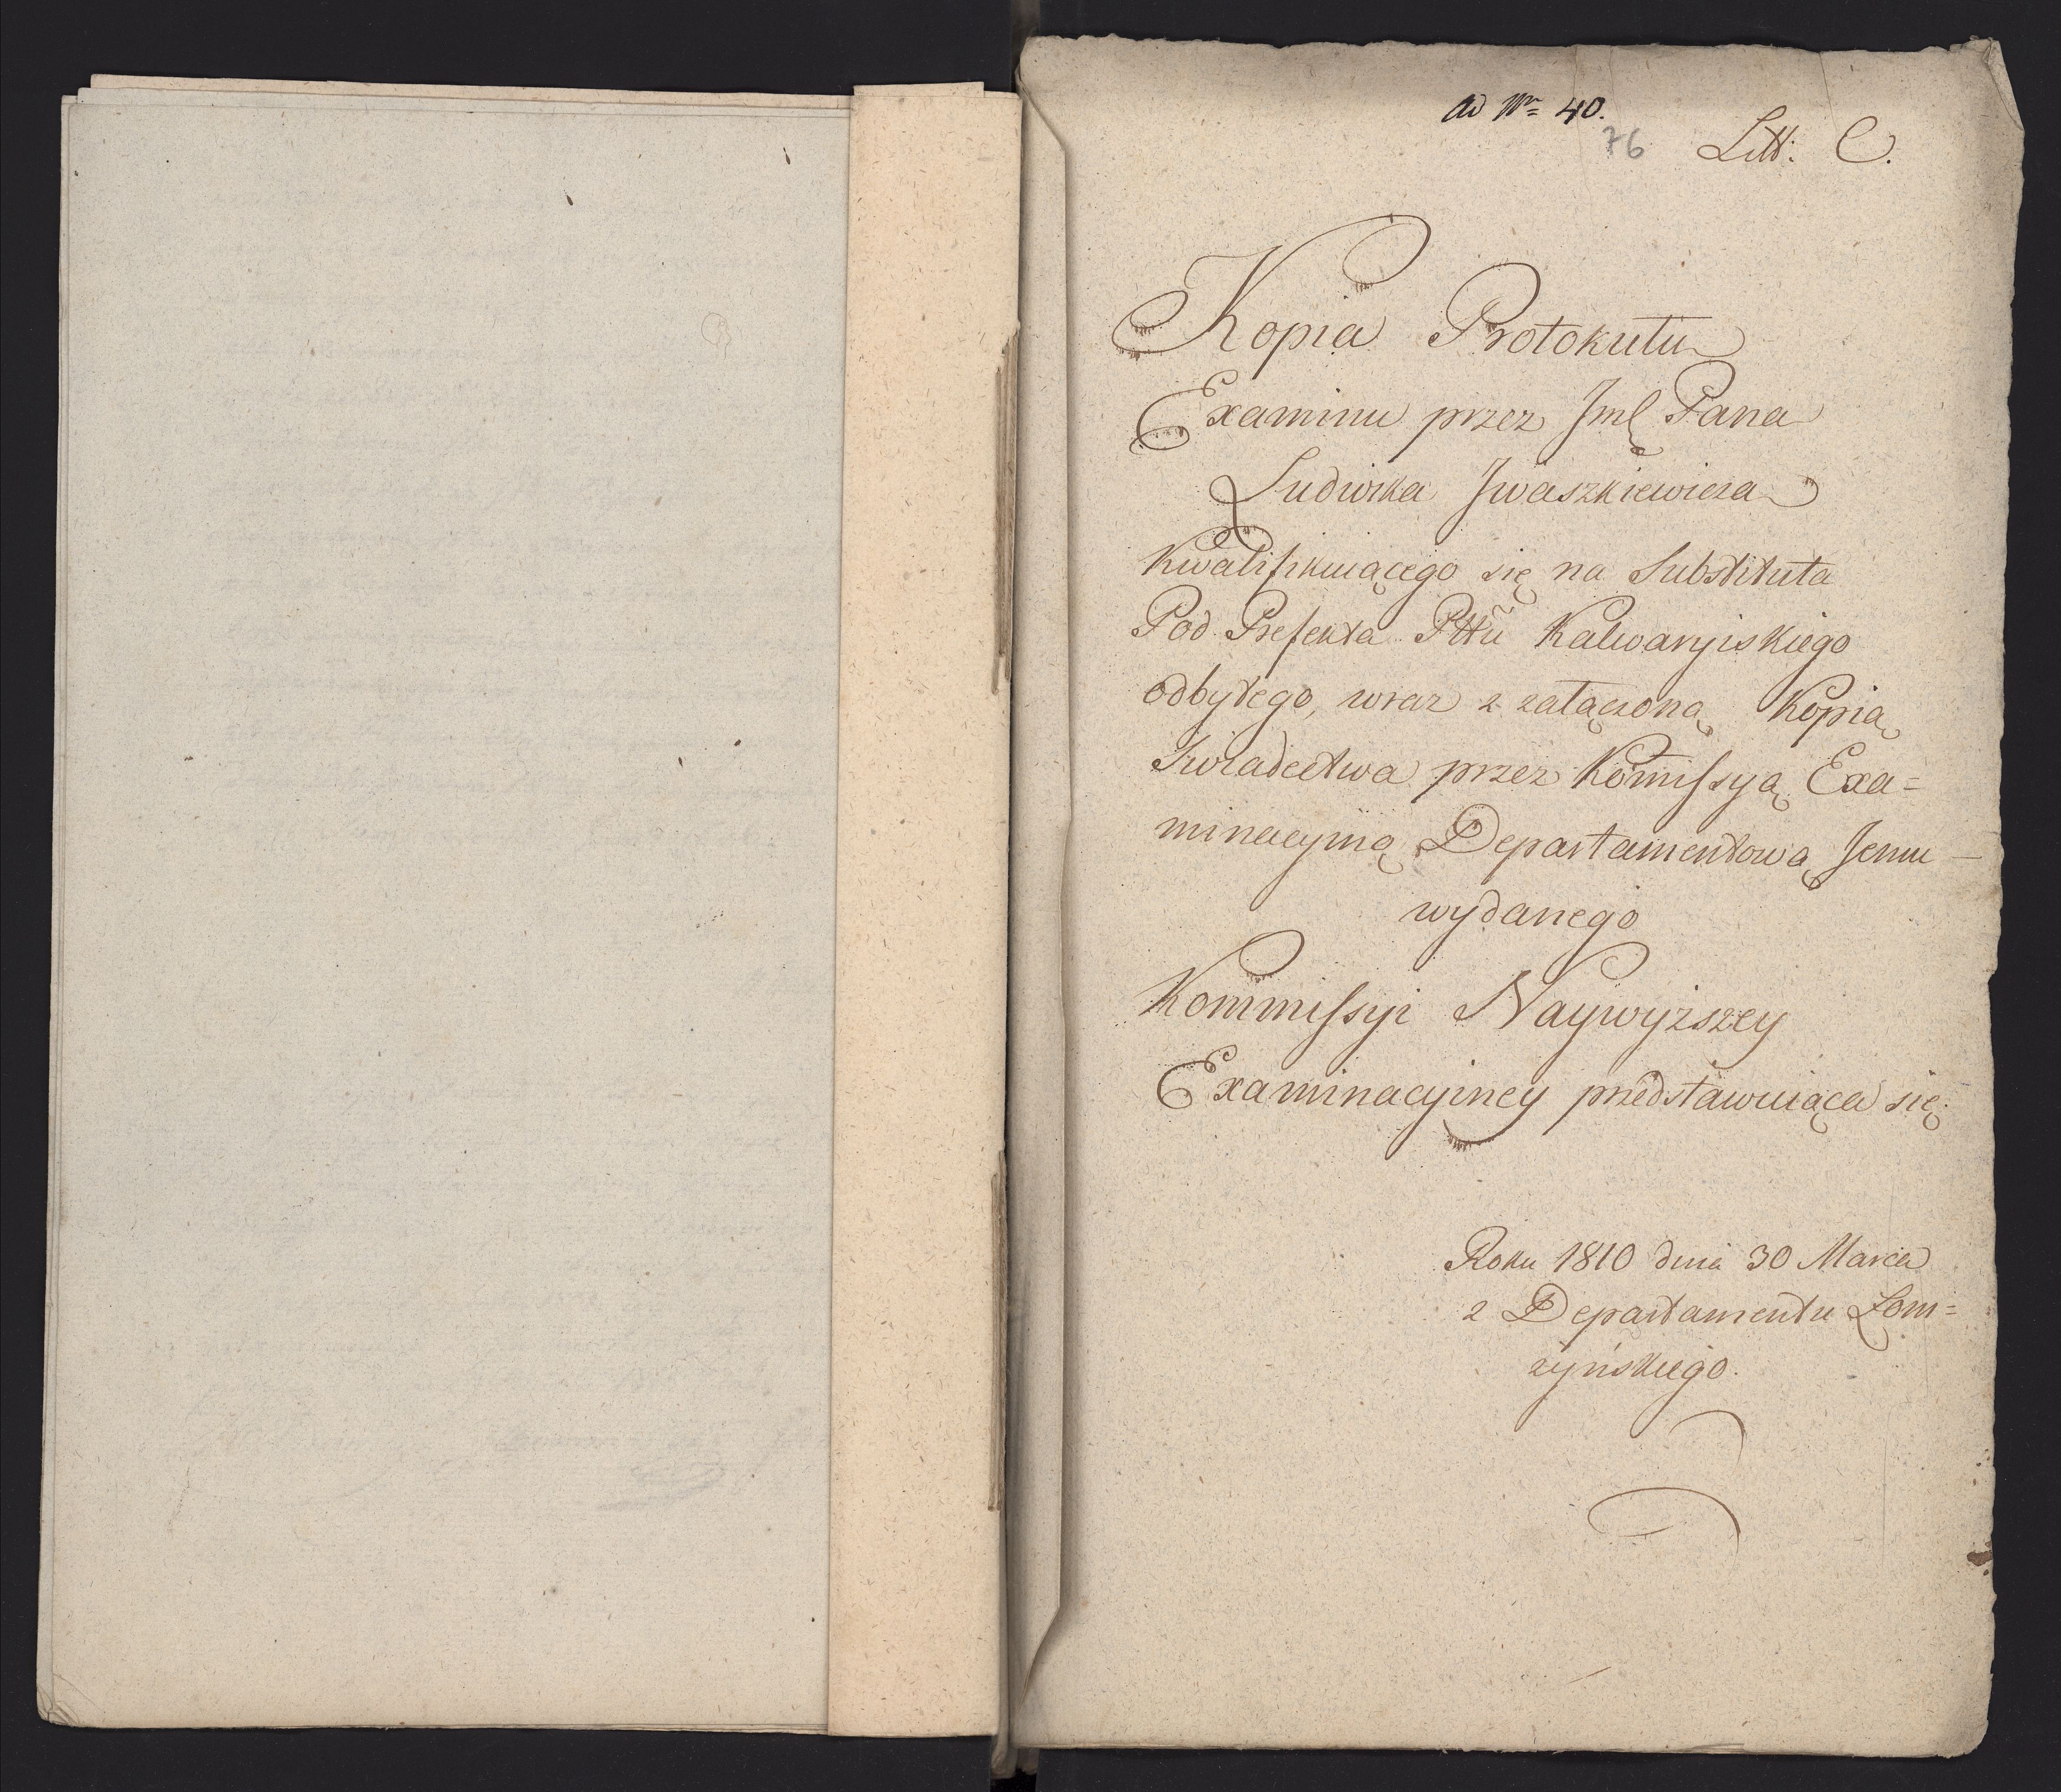 ad Nr= 40.
76
Litt: C.
Kopia Protokułu
Examinu przez Jmć Pana
Ludwika Jwaszkiewicza
Kwalifikuiącego się na Substituta
Pod Prefekta Pttu Kalwaryiskiego
odbytego, wraz z załączoną Kopią
Swiadectwa przez Komissyą Exa=
minacyiną Departamentową Jemu
wydanego
Kommissyi Naywyższey
Examinacyiney przedstawuiąca się.
Roku 1810 dnia 30 Marca
z Departamentu Łom=
żyńskiego.